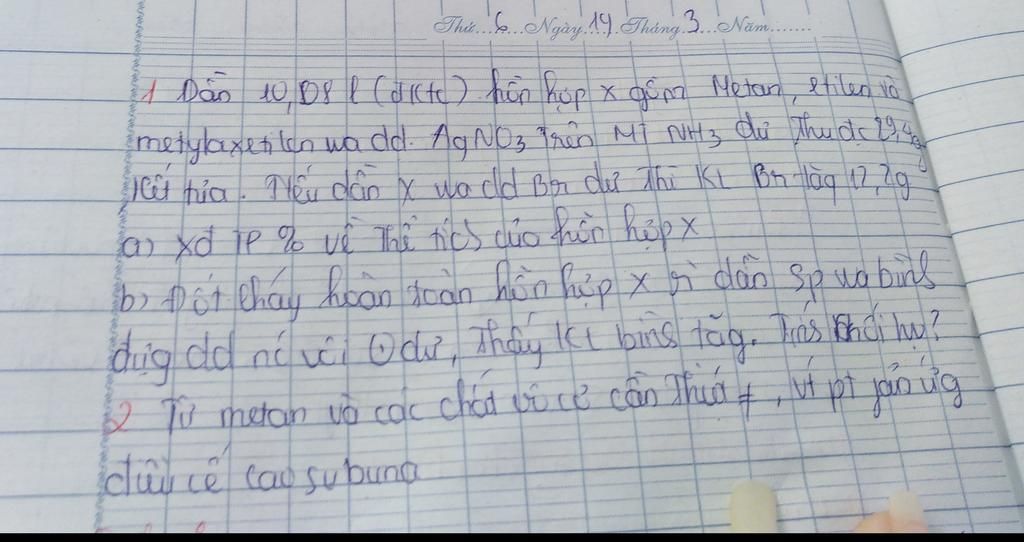 Thứ...6...Ngày.19.Tháng.3...Năm.......
1 Dẫn 10,08 l (đktc) hỗn hợp x gồm Metan, etilen và
metylaxetilen wa dd. AgNO3 trên MT NH3 dư thu đc 29,4g
kết tủa. Nếu dẫn x wa dd Br2 dư thì KL Br2 tăg 12,2g
a) xđ TP % về thể tícs của hỗn hợp x
b) Đốt cháy hoàn toàn hỗn hợp x rì dẫn sp wa bìns
đựg dd nc vôi dư, thấy KL bìns tăg. Tíns khối lg?
2 Từ metan và các chất vô cơ cần thiết ≠, vt pt pản ứg
điều cế cao su buna